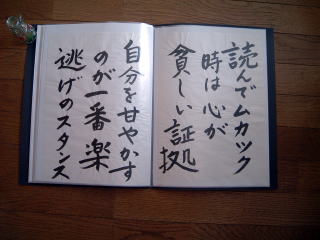 読んでムカツク
時は心が
貧しい証拠
自分を甘やかす
のが一番楽
逃げのスタンス